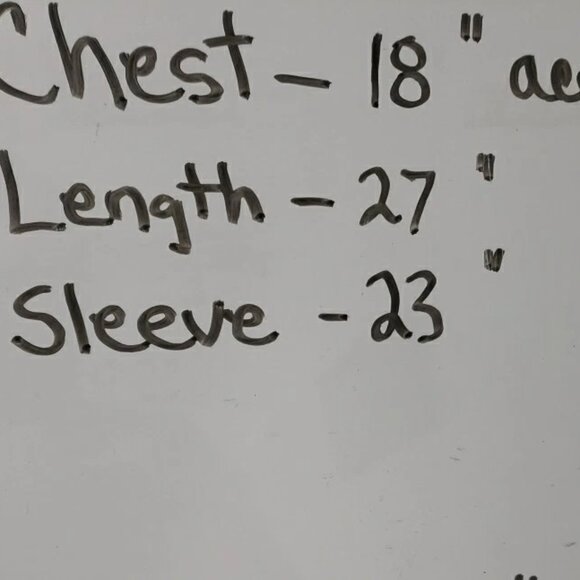 Chest - 18"
Length - 27"
Sleeve - 23"